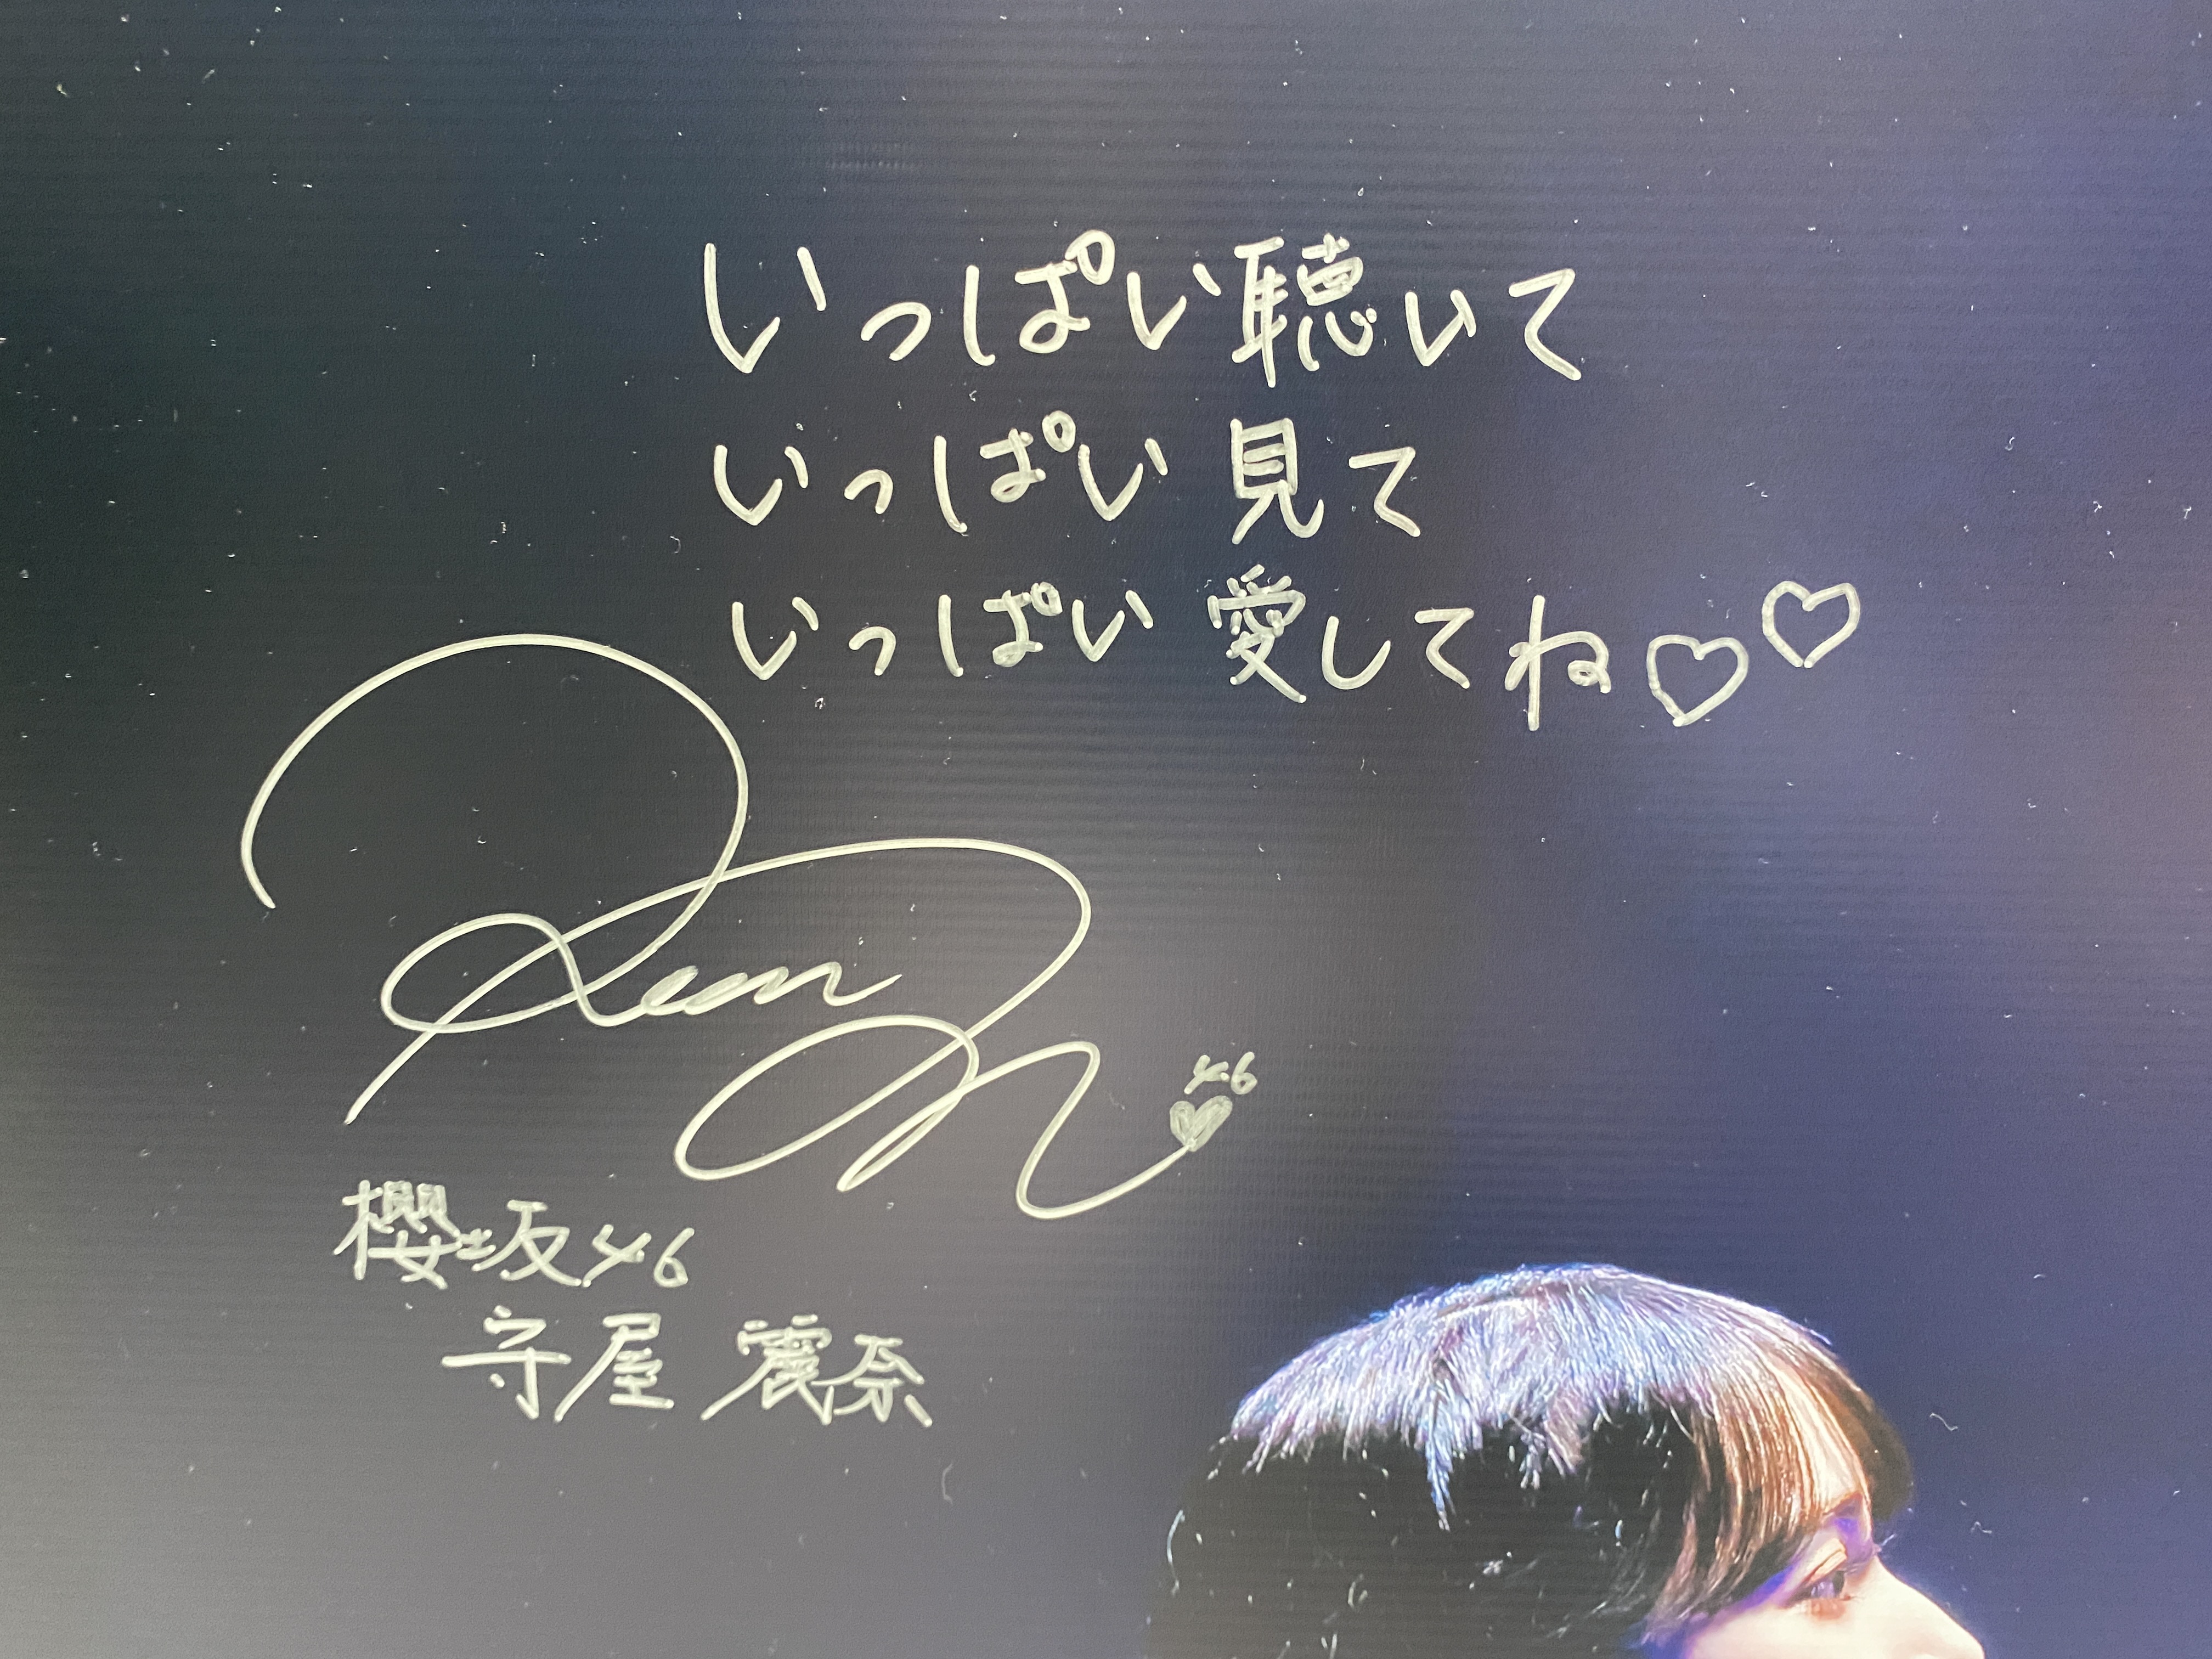 いっぱい聴いて
いっぱい見て
いっぱい愛してね♡♡
46
櫻坂46
守屋 麗奈